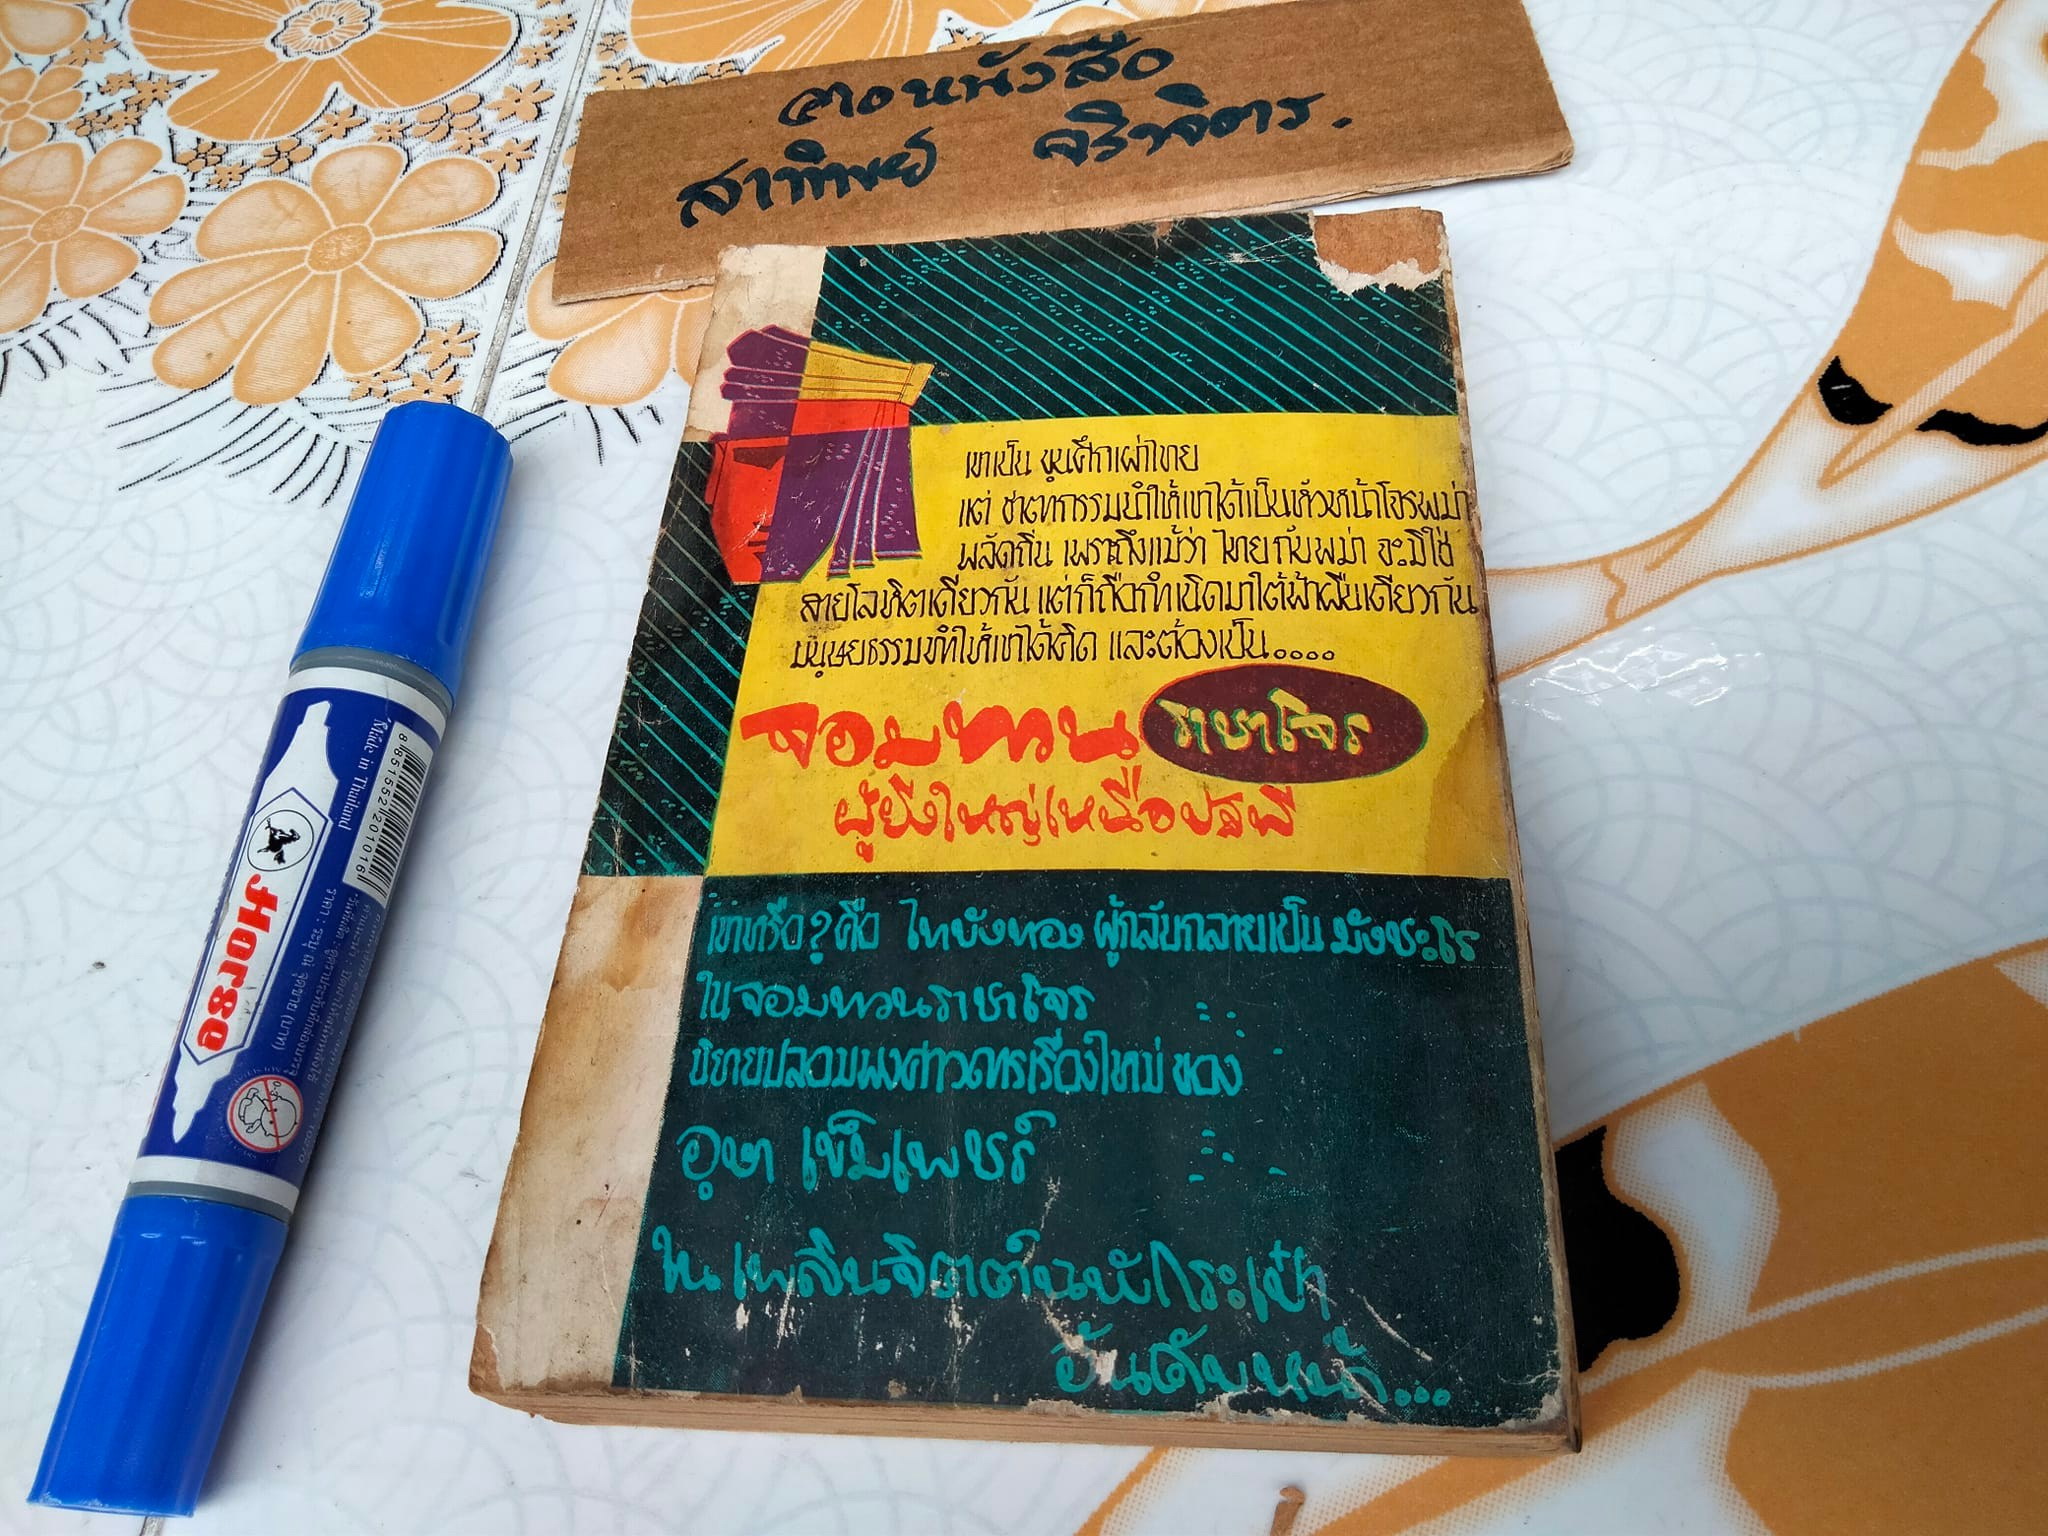 ฅอหนังสือ
สาทิพย์ จริาจิตร.
เขาเป็น ขุนศึกเผ่าไทย
แต่ ชาตากรรมทำให้เขาได้เป็นหัวหน้าโจรพม่า
พลัดถิ่น เพราะถึงแม้ว่า ไทยกับพม่า จะมิใช่
สายโลหิตเดียวกัน แต่ก็ถือกำเนิดมาใต้ฟ้าผืนเดียวกัน
มนุษยธรรมทำให้เขาได้คิด และต้องเป็น....
จอมทวน ราชาโจร
ผู้ยิ่งใหญ่เหนือปฐพี
เขาหรือ? คือ ไทยังทอง ผู้กลับกลายเป็น มังชะโร
ในจอมทวนราชาโจร
นิยายปลอมพงศาวดารเรื่องใหม่ ของ
อุษา เข็มเพชร์
ใน เพลินจิตต์ฉบับกระเป๋า
อันดับหน้า...
Horse
Made in Thailand
8 851552 201016